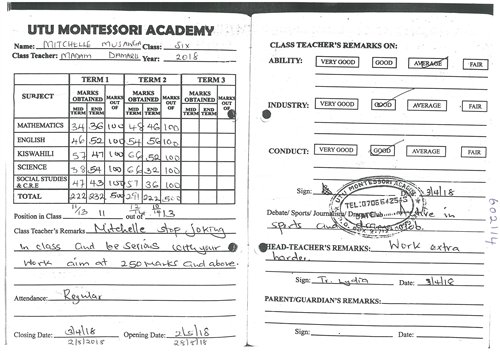 UTU MONTESSORI ACADEMY
Name: MITCHELLE MUSANGA Class: SIX
Class Teacher: MADAM DAMARIS Year: 2018
TERM 1 TERM 2 TERM 3
SUBJECT MARKS OBTAINED MARKS OUT OF MARKS OBTAINED MARKS OUT OF MARKS OBTAINED MARKS OUT OF
MID TERM END TERM MID TERM END TERM MID TERM END TERM
MATHEMATICS 34 36 100 48 46 100
ENGLISH 46 52 100 54 56 100
KISWAHILI 57 47 100 66 52 100
SCIENCE 58 54 100 66 52 100
SOCIAL STUDIES & C.R.E 47 43 100 57 36 100
TOTAL 222 232 500 291 222 500
Position in Class 13 11 out of 13
Class Teacher's Remarks Mitchelle stop joking
in class and be serious with your
work aim at 250 marks and above.
Attendance: Regular
Closing Date: 3/4/18 Opening Date: 2/5/18
2/8/2018 28/8/18
CLASS TEACHER'S REMARKS ON:
ABILITY: VERY GOOD GOOD AVERAGE FAIR
INDUSTRY: VERY GOOD GOOD AVERAGE FAIR
CONDUCT: VERY GOOD GOOD AVERAGE FAIR
Sign: 3/4/18
UTU MONTESSORI ACADEMY
TEL:
Debate/ Sports/ Journalism/ in
sports and
HEAD-TEACHER'S REMARKS: Work extra
harder.
Sign: Tr. Lydia Date: 3/4/18
PARENT/GUARDIAN'S REMARKS:
Sign: Date: